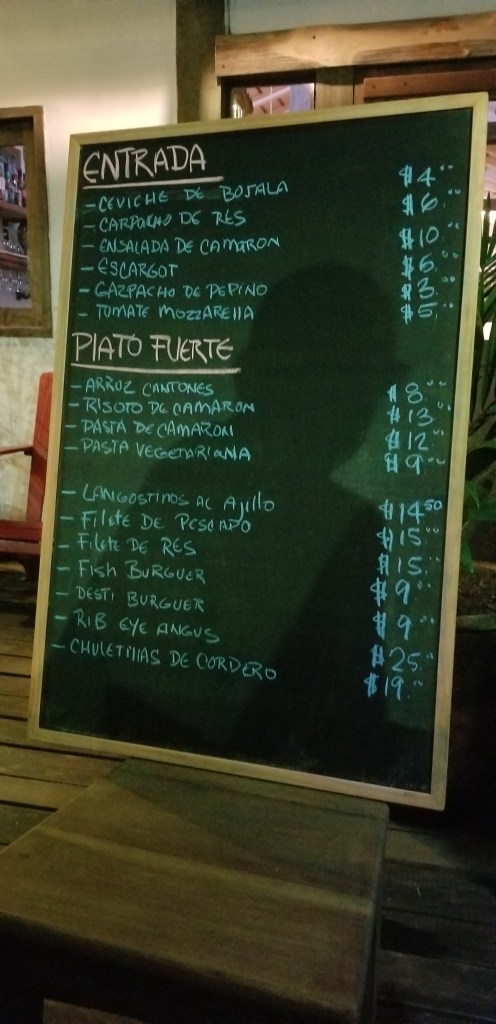 ENTRADA
- CEVICHE DE BOJALA $4.00
- CARPACHO DE RES $6.00
- ENSALADA DE CAMARON $10.00
- ESCARGOT $6.00
- GAZPACHO DE PEPINO $3.00
- TOMATE MOZZARELLA $5.00
PLATO FUERTE
- ARROZ CANTONES $8.00
- RISOTO DE CAMARON $13.00
- PASTA DE CAMARON $12.00
- PASTA VEGETARIANA $9.00
- LANGOSTINOS AL AJILLO $14.50
- FILETE DE PESCADO $15.00
- FILETE DE RES $15.00
- FISH BURGUER $9.00
- DESTI BURGUER $9.00
- RIB EYE ANGUS $25.00
- CHULETILLAS DE CORDERO $19.00